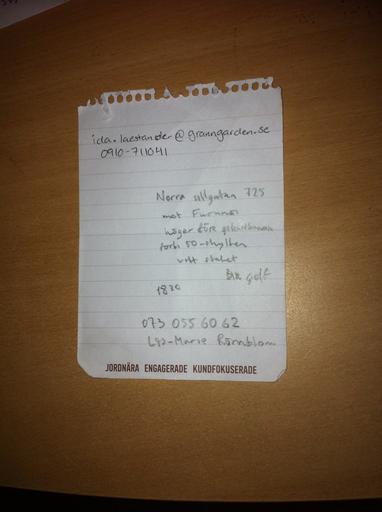 ida.laestander@granngarden.se
0910-711041
Norra 725
mot Furunäs
höger före
förbi 50-skylten
vitt staket
golf
1830
073 055 60 62
Lis-Marie
JORDNÄRA ENGAGERADE KUNDFOKUSERADE